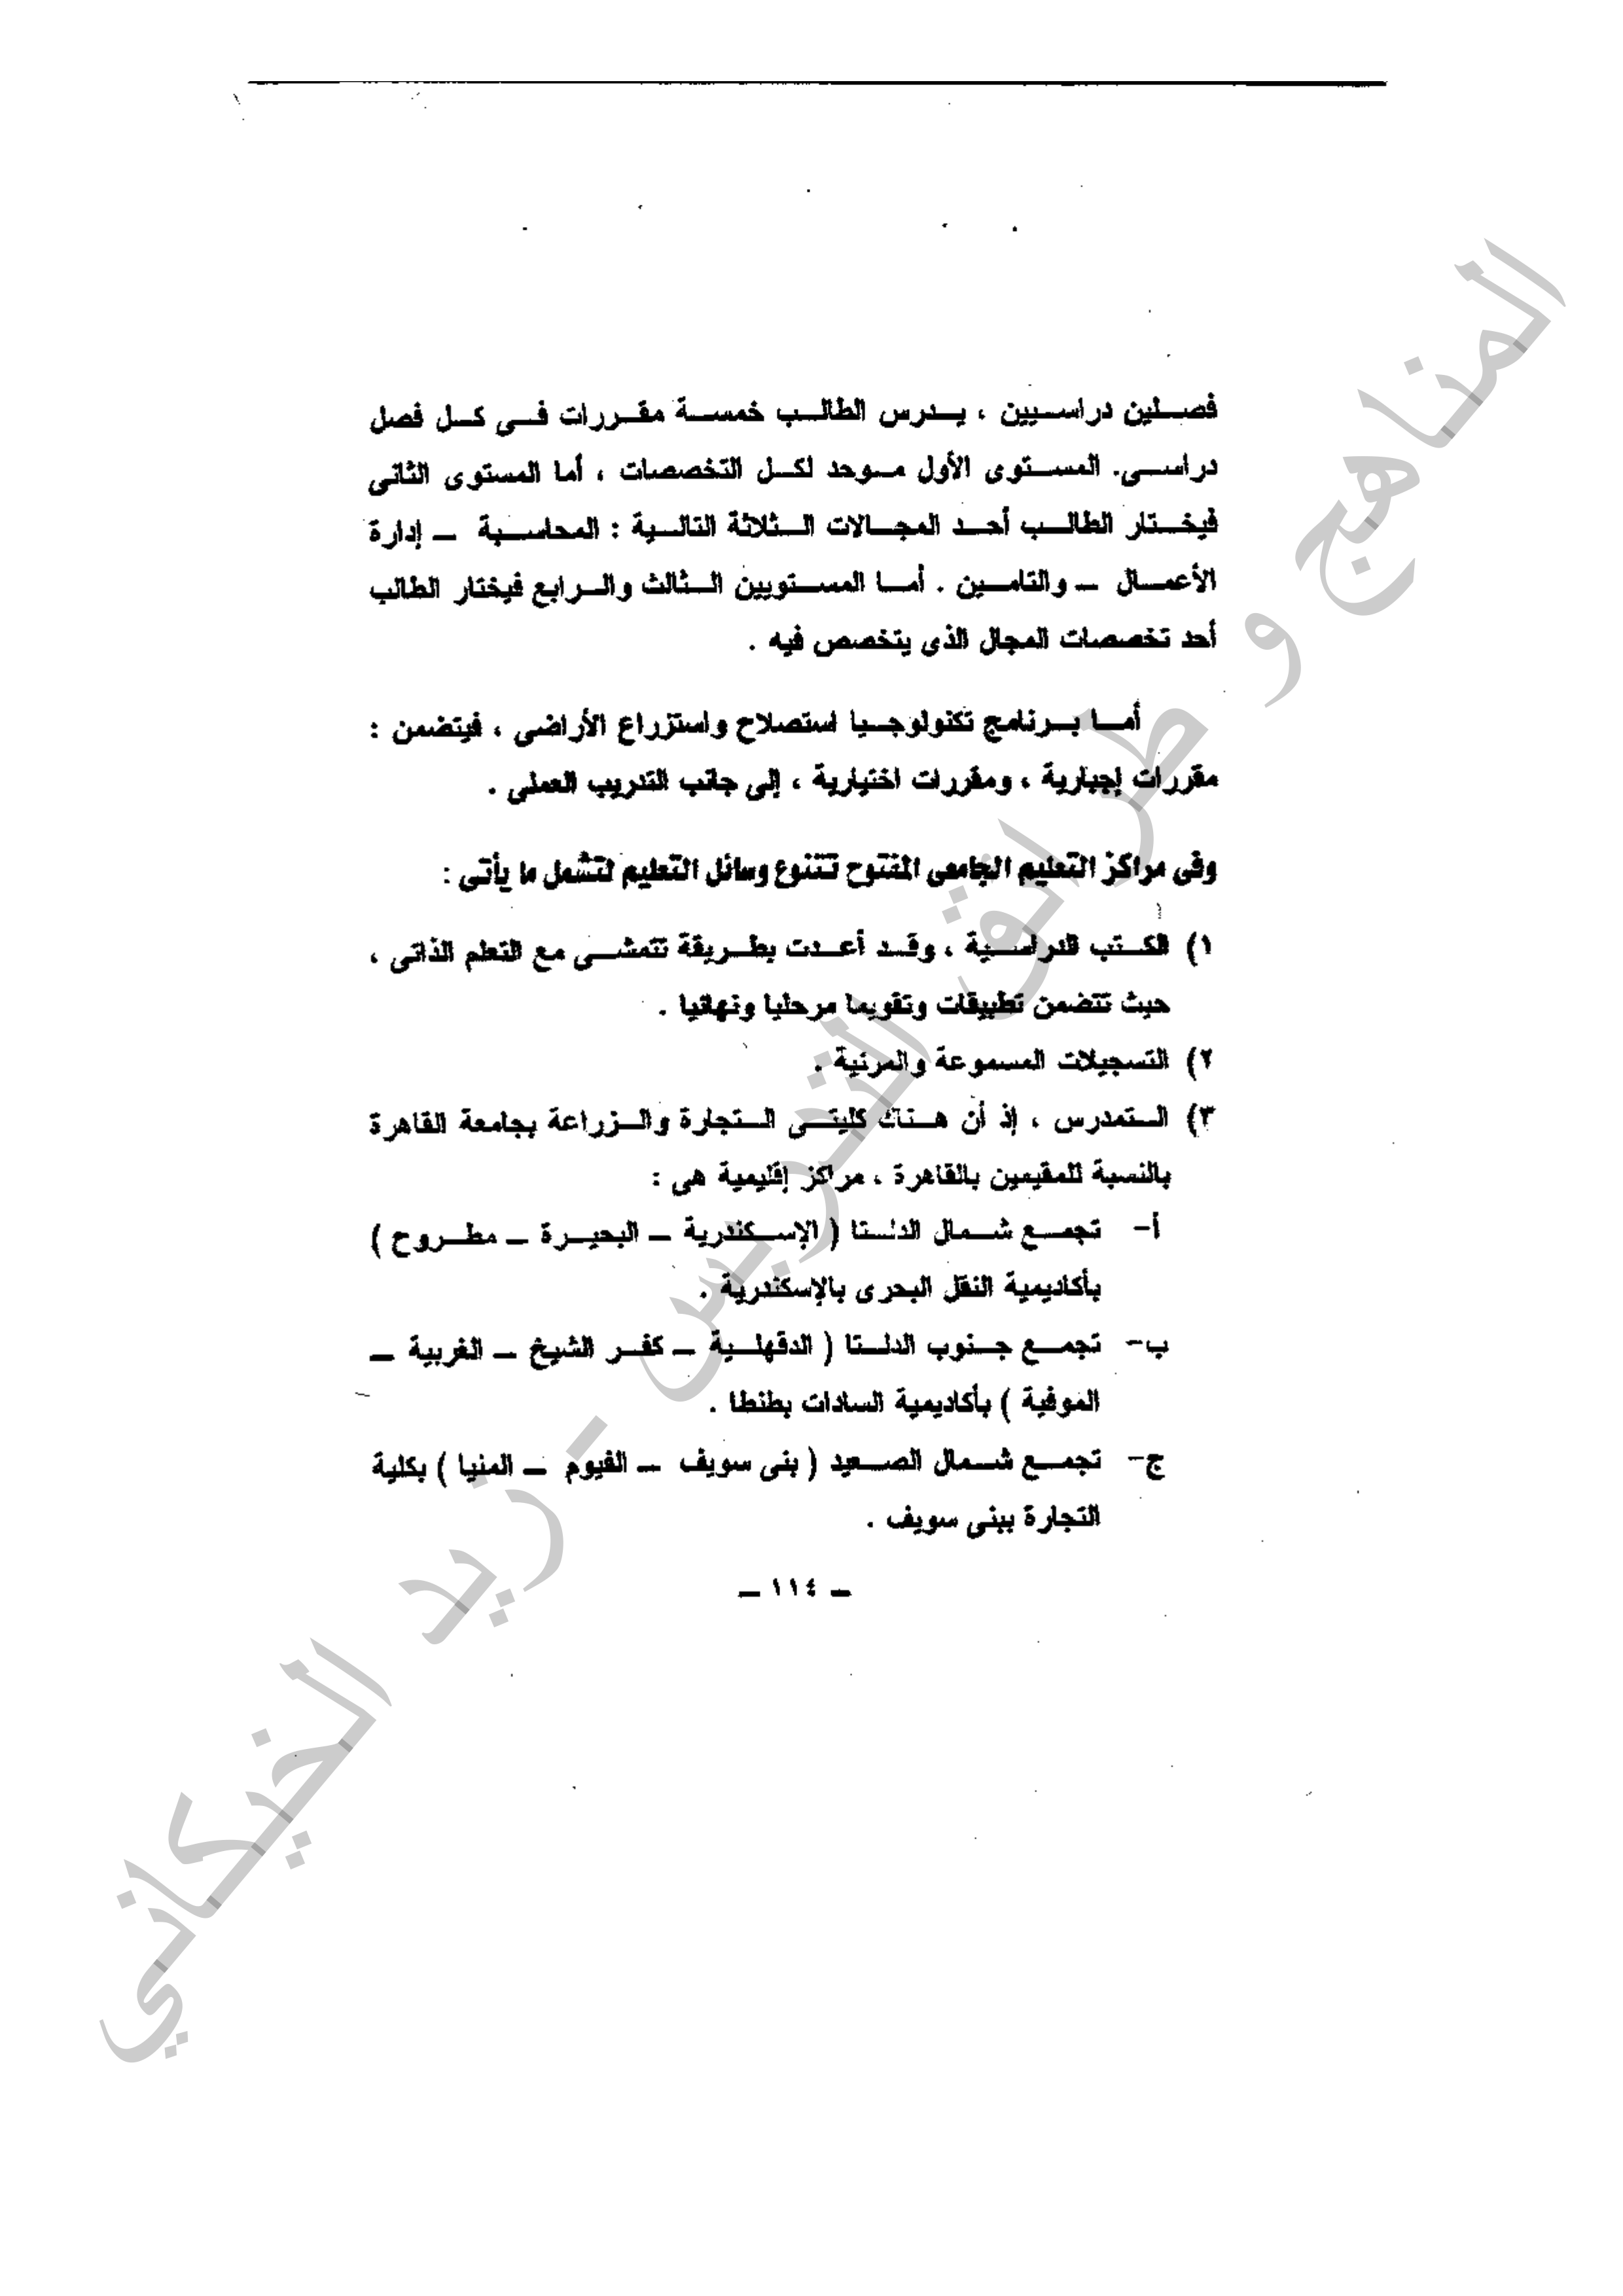 فصلين دراسيين ، يدرس الطالب خمسة مقررات فى كل فصل
دراسى. المستوى الأول موحد لكل التخصصات ، أما المستوى الثانى
فيختار الطالب أحد المجالات الثلاثة التالية : المحاسبة ــ إدارة
الأعمال ــ والتامين . أما المستويين الثالث والرابع فيختار الطالب
أحد تخصصات المجال الذى يتخصص فيه .
أما برنامج تكنولوجيا استصلاح واستزراع الأراضى ، فيتضمن :
مقررات إجبارية ، ومقررات اختيارية ، إلى جانب التدريب العملى .
وفى مراكز التعليم الجامعى المفتوح تتنوع وسائل التعليم لتشمل ما يأتى :
١) الكتب الدراسية ، وقد أعدت بطريقة تتمشى مع التعلم الذاتى ،
حيث تتضمن تطبيقات وتقويما مرحليا ونهائيا .
٢) التسجيلات المسموعة والمرئية .
٣) التمدرس ، إذ أن هناك كليتى التجارة والزراعة بجامعة القاهرة
بالنسبة للمقيمين بالقاهرة ، مراكز إقليمية هى :
أ- تجمع شمال الدلتا ( الإسكندرية ــ البحيرة ــ مطروح )
بأكاديمية النقل البحرى بالإسكندرية .
ب- تجمع جنوب الدلتا ( الدقهلية ــ كفر الشيخ ــ الغربية ــ
الموفية ) بأكاديمية السادات بطنطا .
ج- تجمع شمال الصعيد ( بنى سويف ــ الفيوم ــ المنيا ) بكلية
التجارة ببنى سويف .
ــ ١١٤ ــ
المناهج و طرائق التدريس - زيد الخيكاني